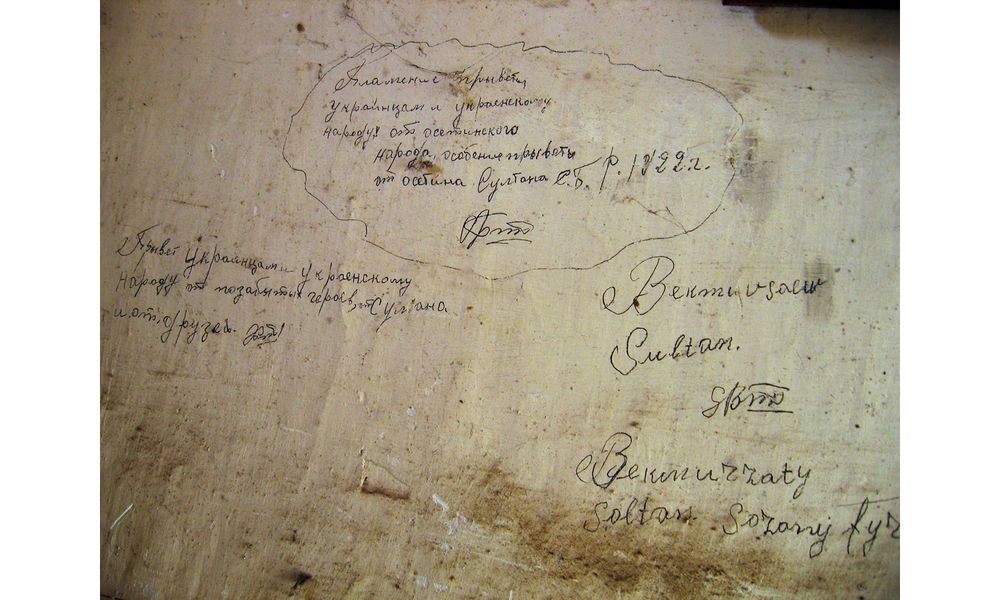 Пламение прывет,
Украинцам и украенскому
народу! от осетинского
народа, особение прыветы
от осетина Султана С.Б. р. 1922 г.
Прывет Украинцам и украенскому
народу от позабытых героев, от Султана
и от друзей.
Bekmuvsaew
Sultan.
Bekmurzaty
Soltan Sozanyj fyr